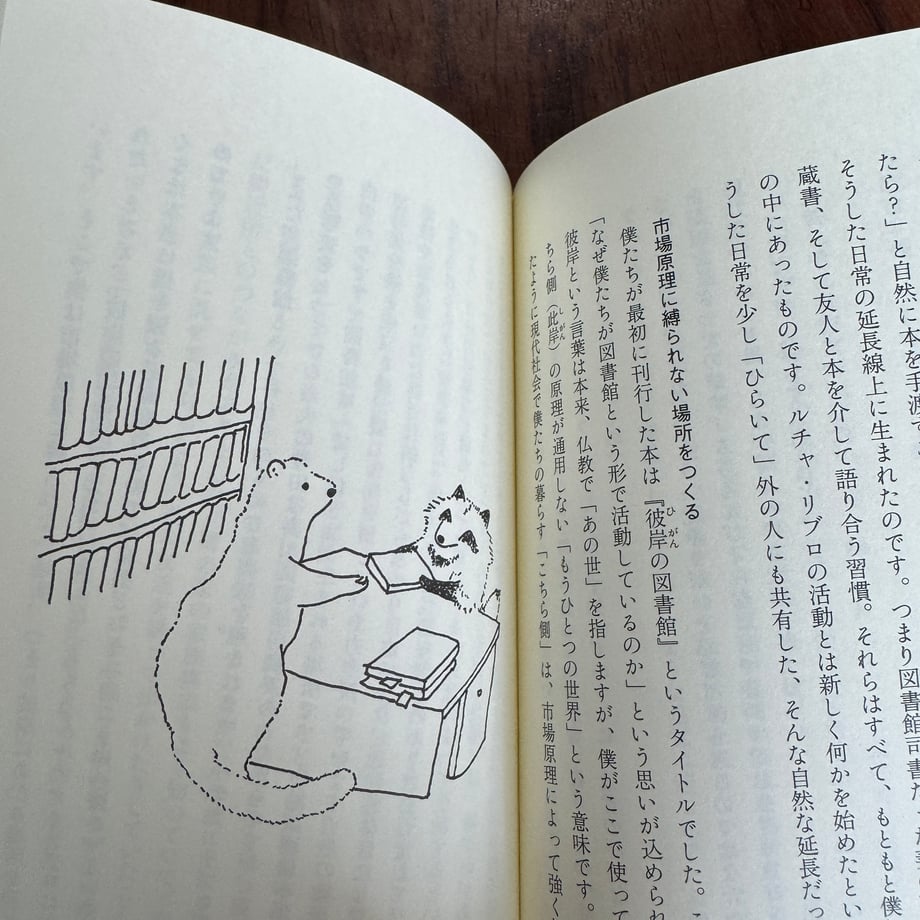 たら?」と自然に本を手渡す
そうした日常の延長線上に生まれたのです。つまり図書館司書
蔵書、そして友人と本を介して語り合う習慣。それらはすべて、もともと僕
の中にあったものです。ルチャ・リブロの活動とは新しく何かを始めたとい
うした日常を少し「ひらいて」外の人にも共有した、そんな自然な延長だっ
市場原理に縛られない場所をつくる
僕たちが最初に刊行した本は『彼岸(ひがん)の図書館』というタイトルでした。
「なぜ僕たちが図書館という形で活動しているのか」という思いが込められ
彼岸という言葉は本来、仏教で「あの世」を指しますが、僕がここで使って
ちら側(此岸(しがん))の原理が通用しない「もうひとつの世界」という意味です。
たように現代社会で僕たちの暮らす「こちら側」は、市場原理によって強く